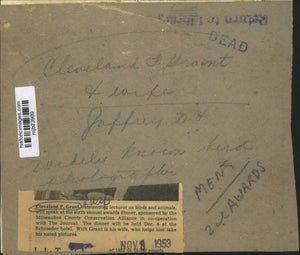 Return to Library
DEAD
Cleveland F. Grant
& wife
Jaffrey, NH
bird
photographer
MENS
2nd AWARDS
Cleveland F. Grant, lectures on birds and animals,
will speak at the sixth annual awards dinner, sponsored by the
Milwaukee County Conservation Alliance in co-operation
with The Journal. The dinner will be held Dec. 4 at the
Schroeder hotel. With Grant is his wife, who helps him take
his noted pictures.
NOV 1953